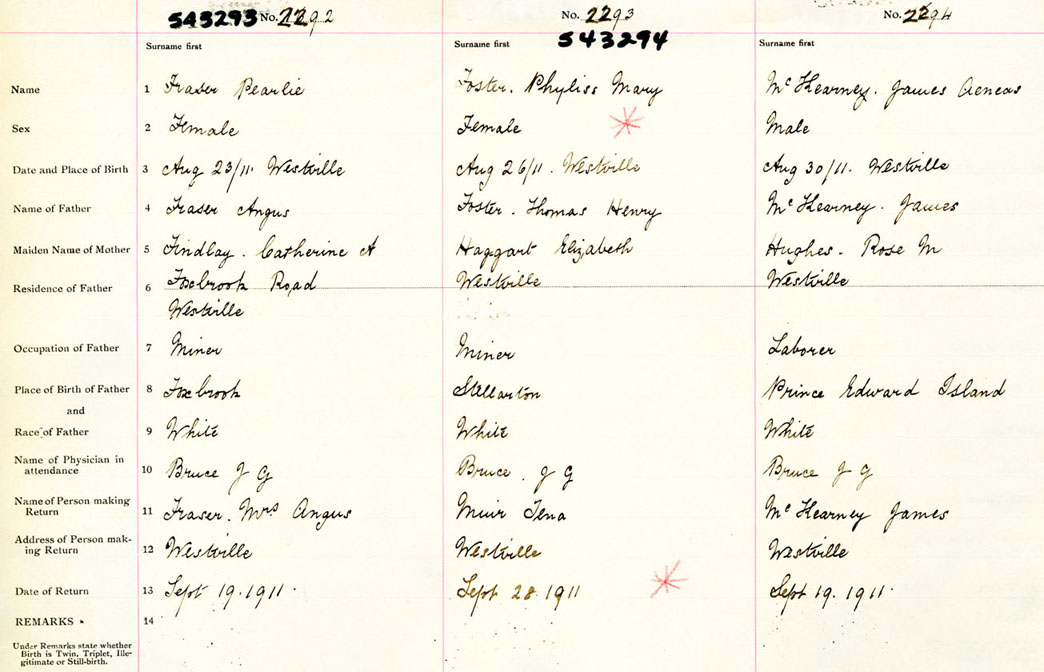 543293 No. 2292 No. 2293 No. 2294
Surname first Surname first 543294 Surname first
Name 1 Fraser Pearlie Foster. Phyliss Mary McKearney. James Aeneas
Sex 2 Female Female Male
Date and Place of Birth 3 Aug 23/11. Westville Aug 26/11. Westville Aug 30/11. Westville
Name of Father 4 Fraser Angus Foster. Thomas Henry McKearney. James
Maiden Name of Mother 5 Findlay. Catherine A Haggart Elizabeth Hughes. Rose M
Residence of Father 6 Foxbrook Road Westville Westville
Westville
Occupation of Father 7 Miner Miner Laborer
Place of Birth of Father 8 Foxbrook Stellarton Prince Edward Island
and
Race of Father 9 White White White
Name of Physician in
attendance 10 Bruce J G Bruce. J G Bruce J G
Name of Person making
Return 11 Fraser. Mrs Angus Muir Tena McKearney James
Address of Person mak-
ing Return 12 Westville Westville Westville
Date of Return 13 Sept 19. 1911. Sept 28. 1911 Sept 19. 1911.
REMARKS 14
Under Remarks state whether
Birth is Twin, Triplet, Ille-
gitimate or Still-birth.